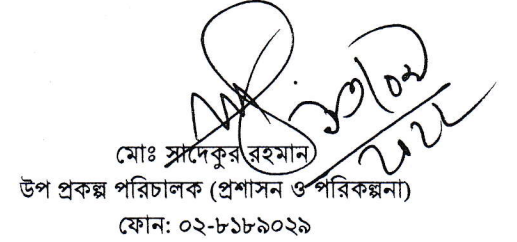 মোঃ সাদেকুর রহমান
উপ প্রকল্প পরিচালক (প্রশাসন ও পরিকল্পনা)
ফোন: ০২-৮১৮৯০২৯